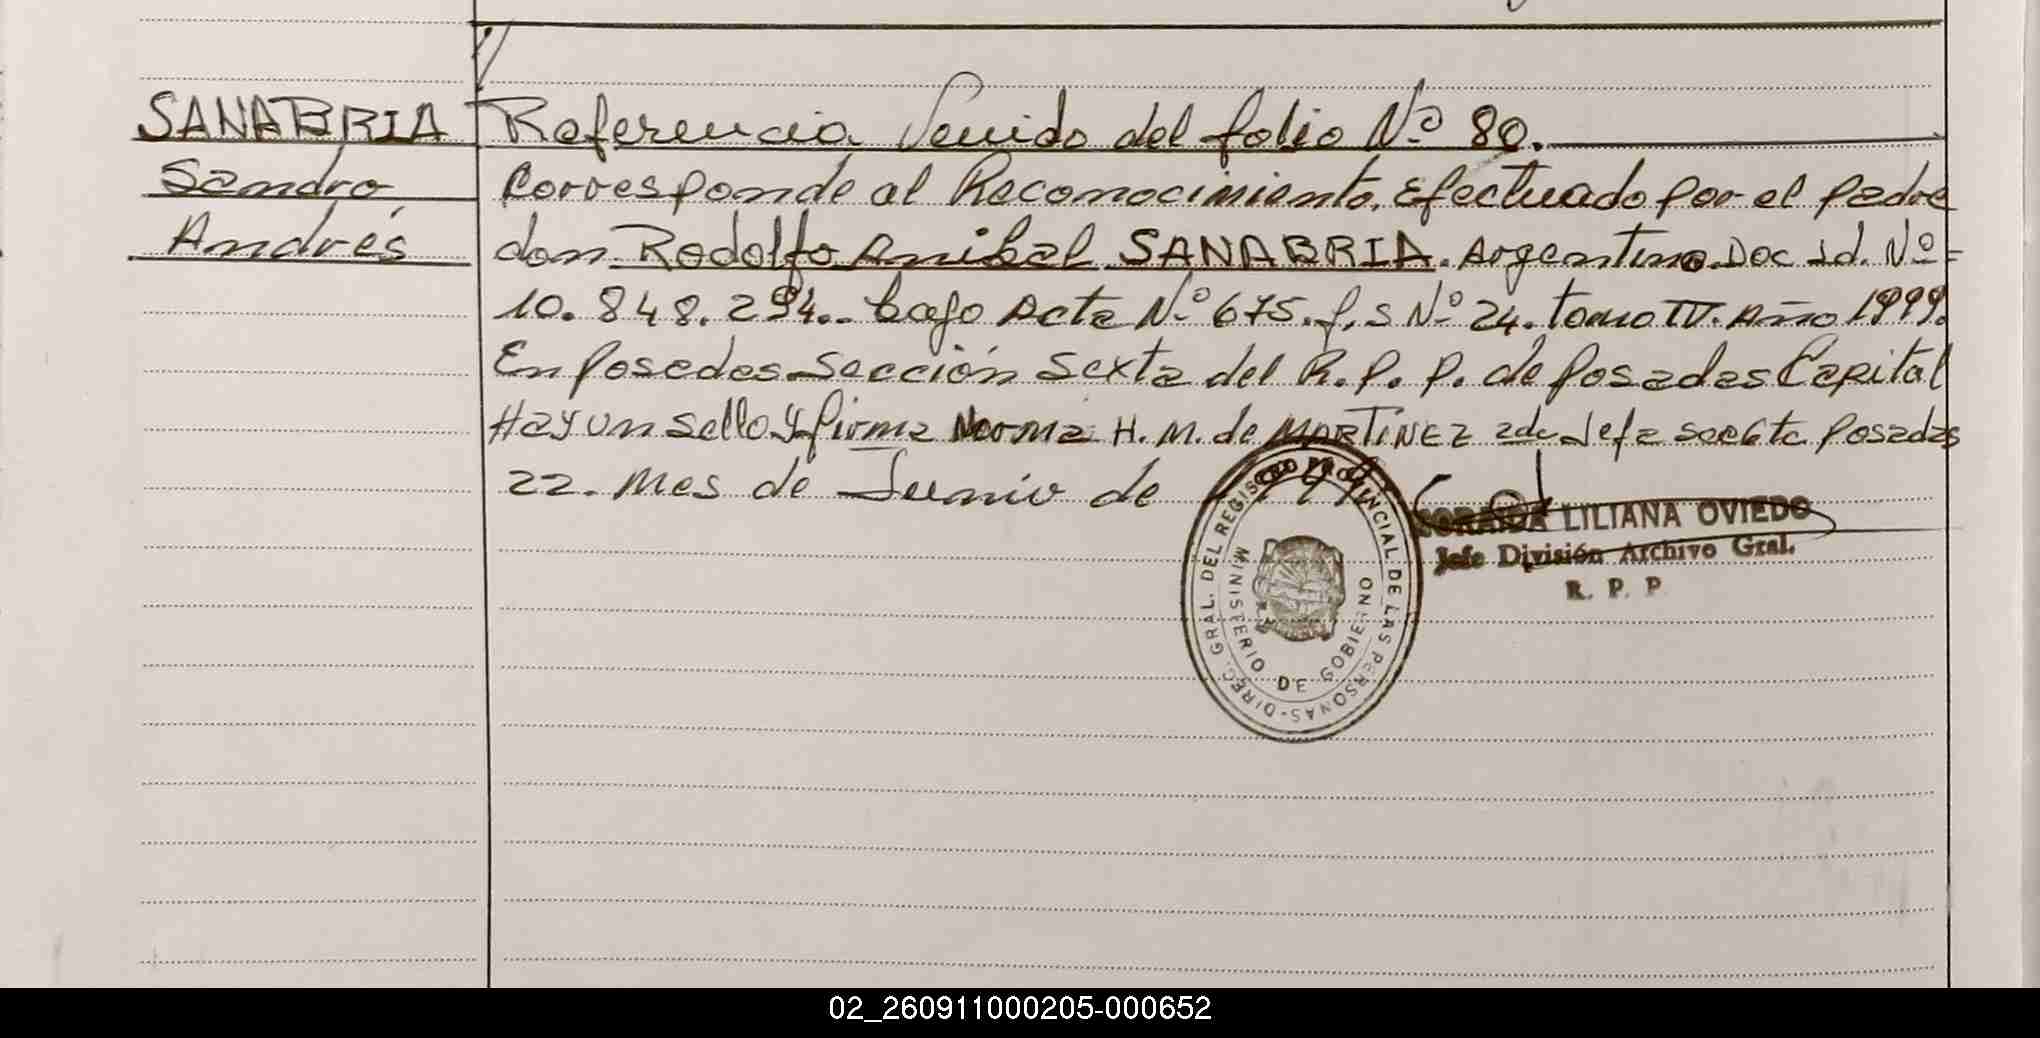 SANABRIA
Sandro
Andrés
Referencia Venido del folio Nº 80.
Corresponde al Reconocimiento. Efectuado por el padre
don Rodolfo Anibal SANABRIA. Argentino. Doc Id. Nº-
10.848.294.- bajo Acta Nº 675. f,s Nº 24. tomo IV. Año 1999.
En Posadas Sección Sexta del R.P.P. de Posadas Capital
Hay un sello y firma Norma H. M. de MARTINEZ Jefa Posadas
22. Mes de Junio de
DIREC. GRAL. DEL REGISTRO PROVINCIAL DE LAS PERSONAS-
MINISTERIO DE GOBIERNO
LILIANA OVIEDO
Jefe División Archivo Gral.
R. P. P
02_260911000205-000652